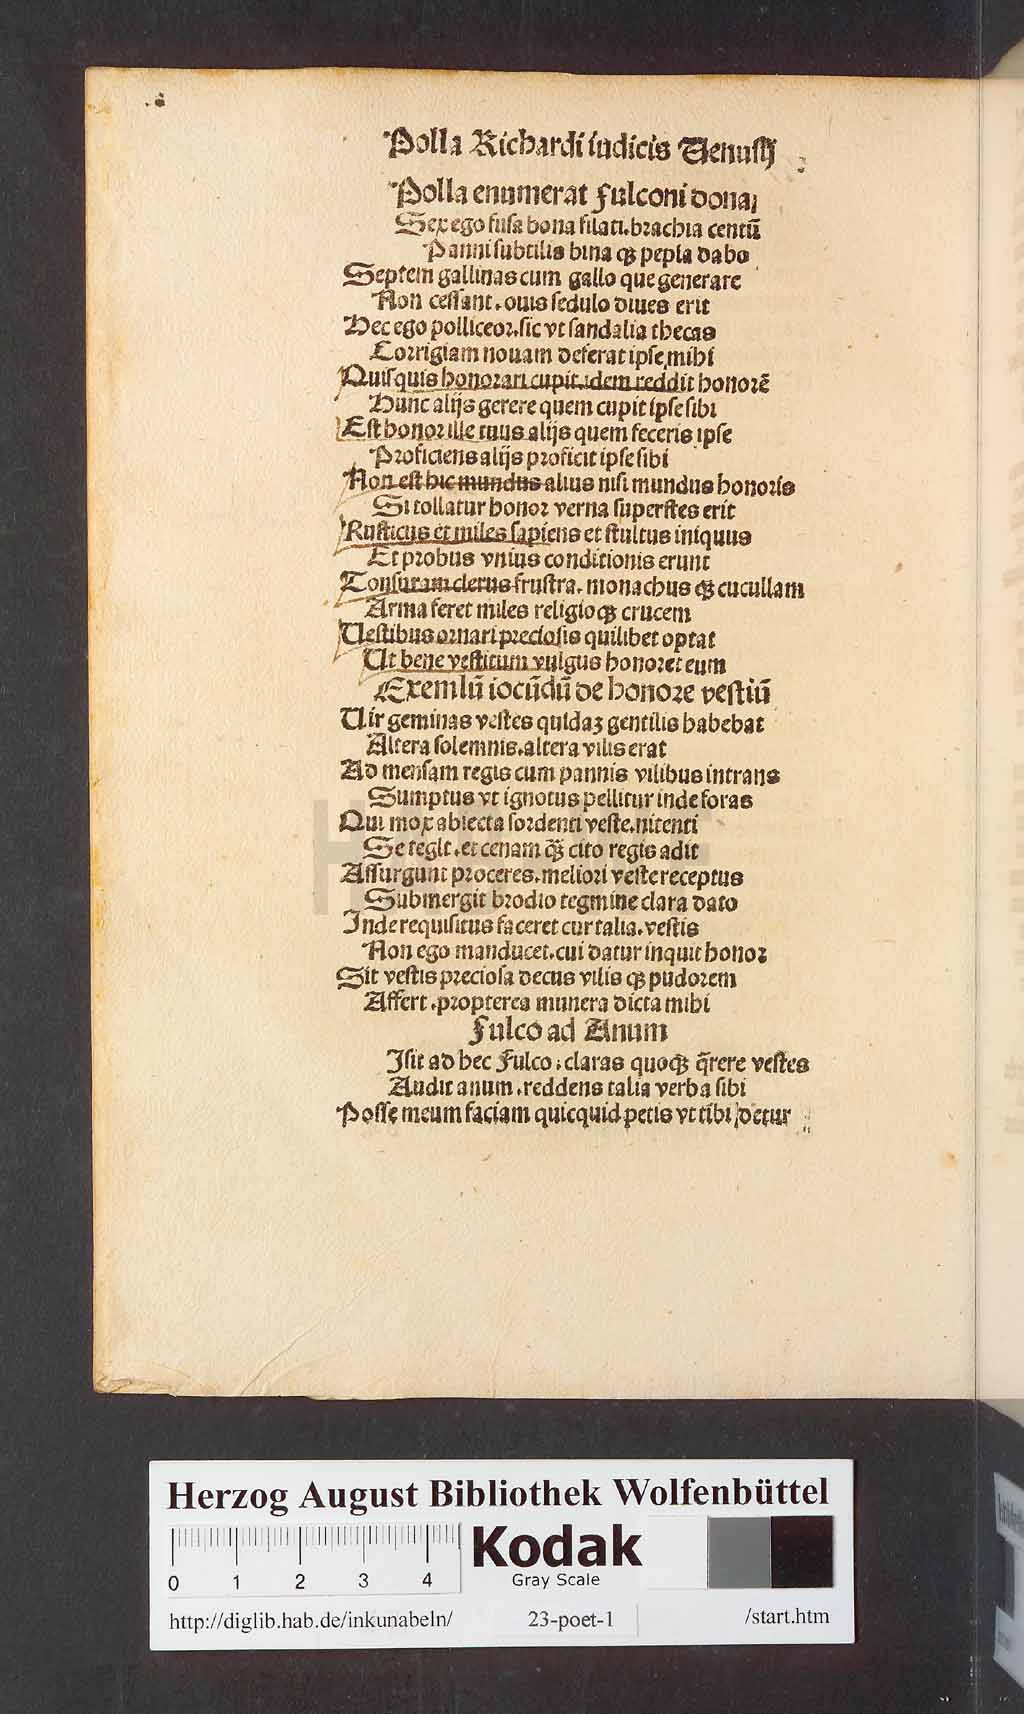 Polla Richardi iudicis Venusij
Polla enumerat Fulconi dona
Sex ego fusa bona filati. brachia centū
Panni subtilis bina qꝫ pepla dabo
Septem gallinas cum gallo que generare
Non cessant. ouis sedulo diues erit
Hec ego polliceor. sic vt sandalia thecas
Corrigiam nouam deferat ipse mihi
Quisquis honorari cupit idem reddit honorē
Hunc alijs gerere quem cupit ipse sibi
Est honor ille tuus alijs quem feceris ipse
Proficiens alijs proficit ipse sibi
Non est hic mundus alius nisi mundus honoris
Si tollatur honor verna superstes erit
Rusticus et miles sapiens et stultus iniquus
Et probus vnius conditionis erunt
Tonsuram clerus frustra. monachus qꝫ cucullam
Arma feret miles religio qꝫ crucem
Uestibus ornari preciosis quilibet optat
Ut bene vestitum vulgus honoret eum
Exemlū iocūdū de honore vestiū
Uir geminas vestes quidaꝫ gentilis habebat
Altera solemnis. altera vilis erat
Ad mensam regis cum pannis vilibus intrans
Sumptus vt ignotus pellitur inde foras
Qui mox abiecta sordenti veste. nitenti
Se tegit. et cenam qꝫ̄ cito regis adit
Assurgunt proceres. meliori veste receptus
Submergit brodio tegmine clara dato
Inde requisitus faceret cur talia. vestis
Non ego manducet. cui datur inquit honor
Sit vestis preciosa decus vilis qꝫ pudorem
Affert. propterea munera dicta mihi
Fulco ad Anum
Isit ad hec Fulco: claras quoqꝫ q̄rere vestes
Audit anum. reddens talia verba sibi
Posse meum faciam quicquid petis vt tibi detur
HAB
Herzog August Bibliothek Wolfenbüttel
0 1 2 3 4
Kodak
Gray Scale
http://diglib.hab.de/inkunabeln/ 23-poet-1 /start.htm